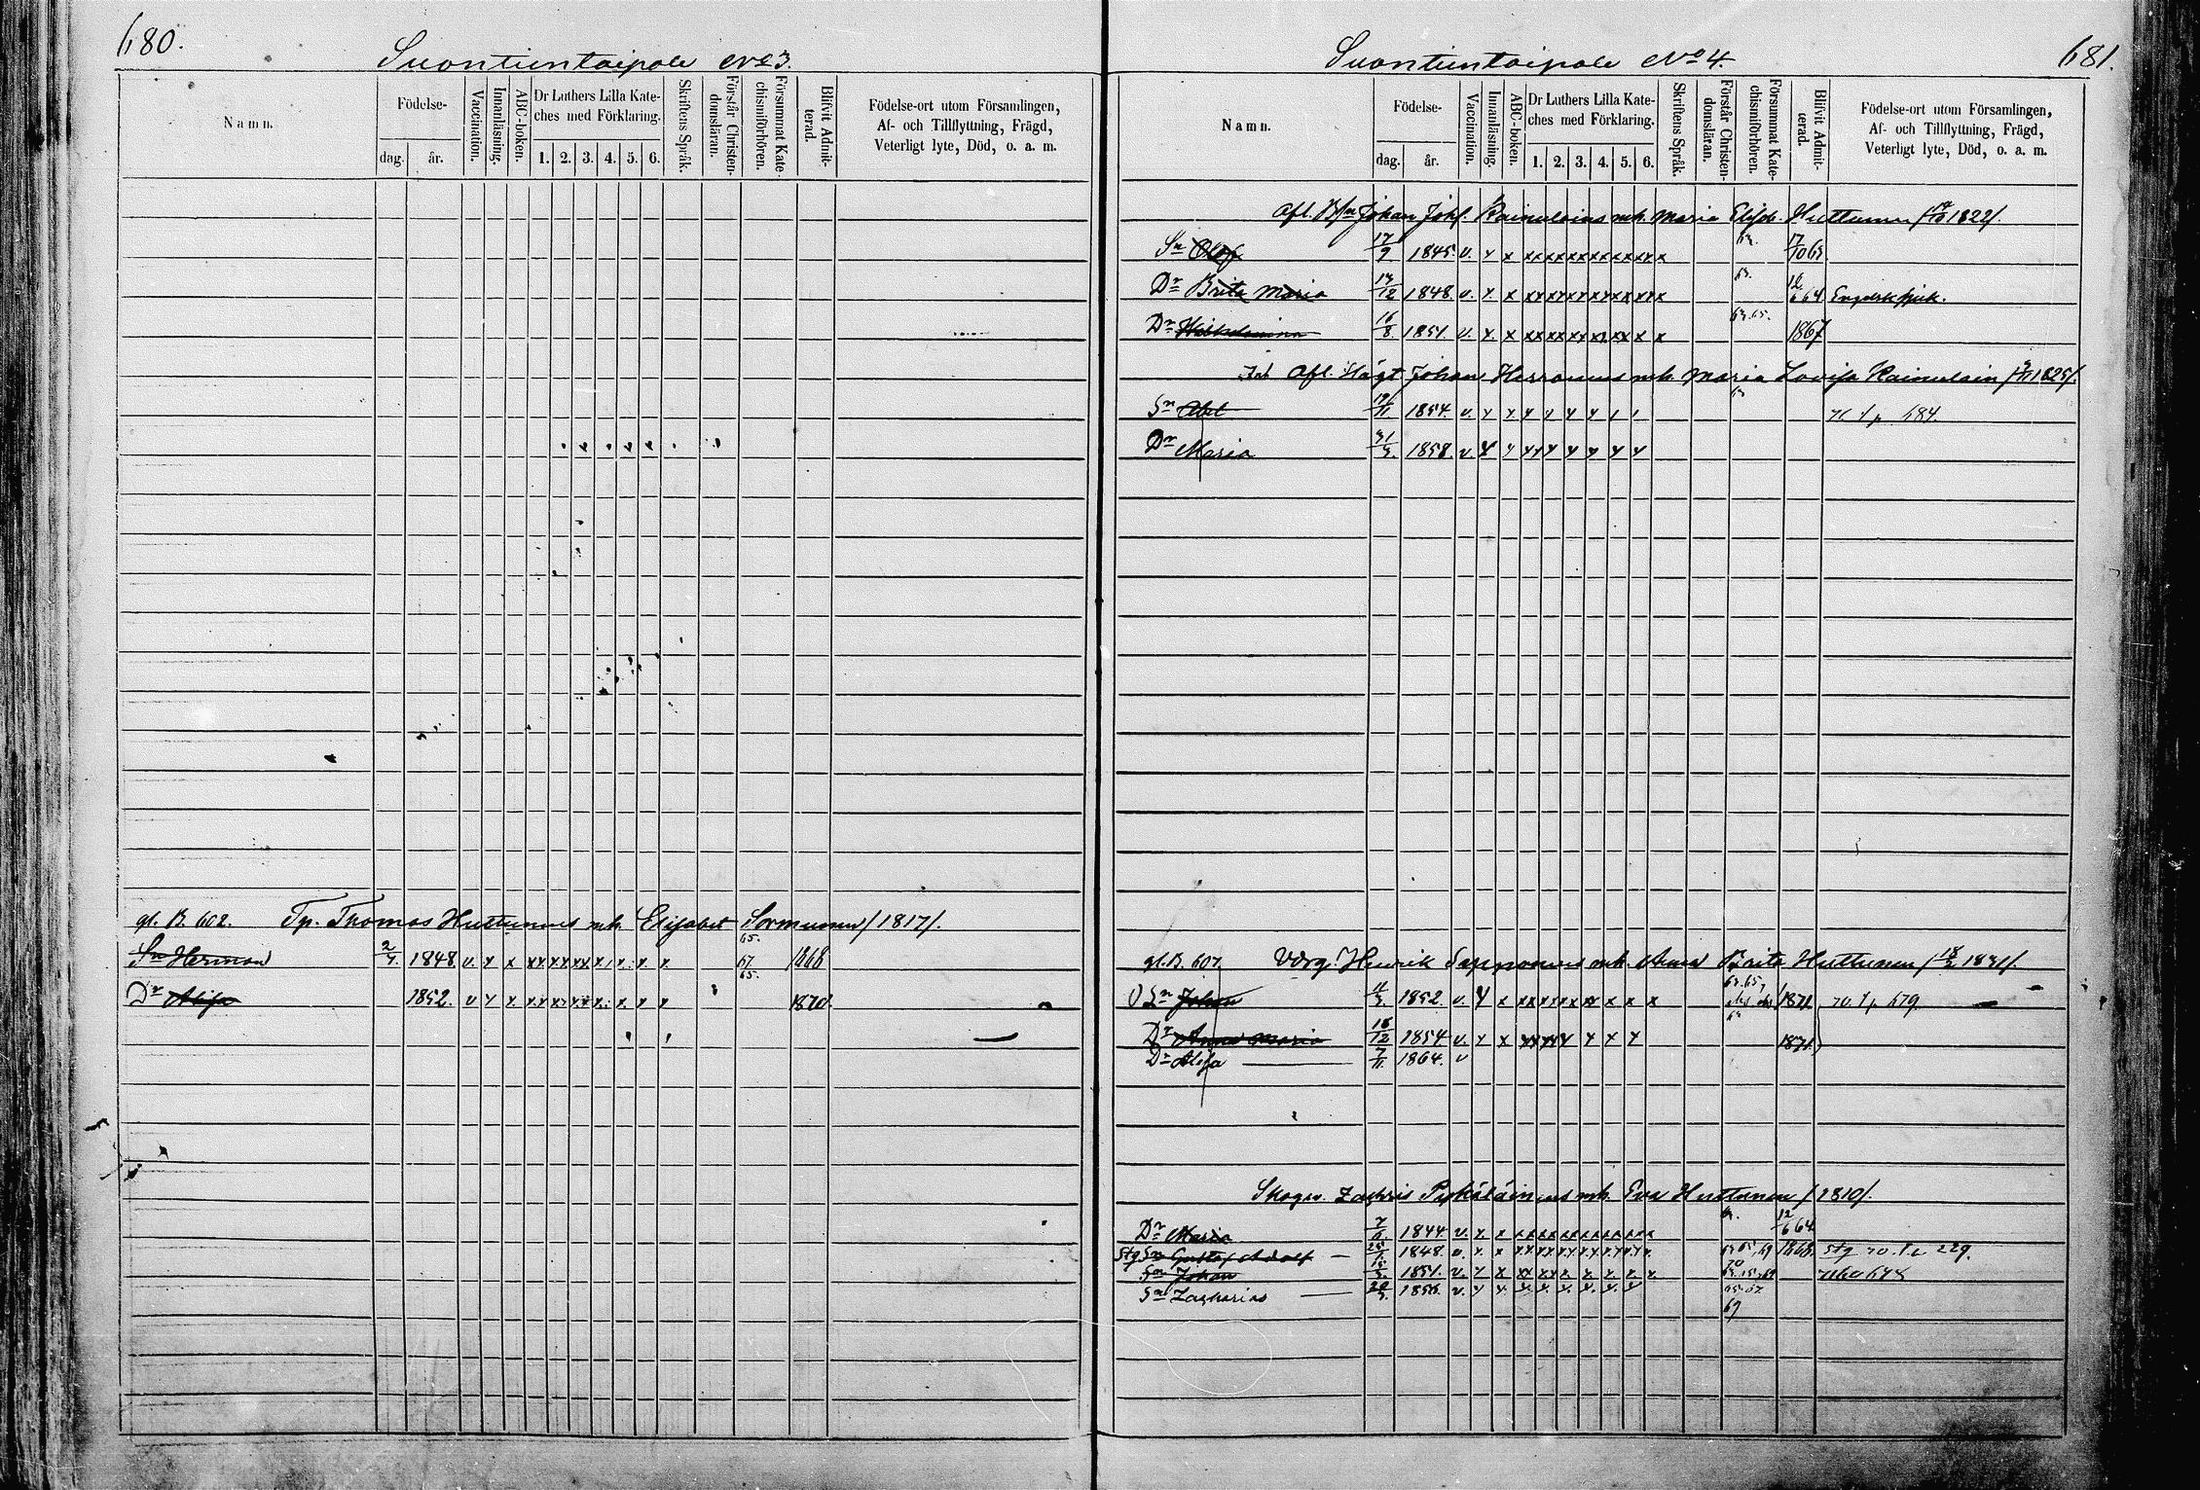 680.
Suontientaipale No 3.
Namn.
Födelse-
dag.
år.
Vaccination.
Innanläsning.
ABC-boken.
Dr Luthers Lilla Kate-
ches med Förklaring.
1. 2. 3. 4. 5. 6.
Skriftens Språk.
Förstår Christen-
domsläran.
Försummat Kate-
chismiförhören.
Blifvit Admit-
terad.
Födelse-ort utom Församlingen,
Af- och Tillflyttning, Frägd,
Veterligt lyte, Död, o. a. m.
gl. B. 602. Tp. Thomas Huttunens mh. Elisabet Sormunen /1817/.
Sn Herman 2/7. 1848. v. x x xx xx xx x. x. x. x 65. 67 1868
Dr Alisa 1852. v x x x x x x x x x x x 65. 1870.
681.
Suontientaipale No 4.
Namn.
Födelse-
dag.
år.
Vaccination.
Innanläsning.
ABC-boken.
Dr Luthers Lilla Kate-
ches med Förklaring.
1. 2. 3. 4. 5. 6.
Skriftens Språk.
Förstår Christen-
domsläran.
Försummat Kate-
chismiförhören.
Blifvit Admit-
terad.
Födelse-ort utom Församlingen,
Af- och Tillflyttning, Frägd,
Veterligt lyte, Död, o. a. m.
Afl. Johan Johs. Kainulains mh. Maria Elisab. Huttunen 1822/.
Sn Olof 17/9 1845. v. x x xxxxxxxxxxxx x 17/10 63
Dr Brita Maria 13/12 1848. v. x. x xxxxxxxxxxxx x 63. 12/6 64
Dr Wilhelmina 16/8. 1851. v. x. x xxxxxxxx x x x 63. 65. 1867
Afl. Johan Hirvonens mh. Maria Lovisa Kainulain 1825/.
Sn Abel 19/11 1854. v. x x x x x x 63 684.
Dr Maria 31/3. 1858. v. x x xx x x x x x
gl. B. 607. Henrik Sapponens mh. Anna Brita Huttunen /18/2 1831/.
Sn Johan 11/3. 1852. v. x x xxxxxxx x x x x 63. 65, 1871. 679.
Dr Anna Maria 18/12 1854 v. x x xxxxx x x x 63 1871.
Dr Alisa 7/11. 1864. v
Skogv. Zachris Pykäläinens mh. Eva Huttunen /1810/.
Dr Maria 1844. v. x x xxxxxxxxxxxx 12/6 64.
Sn Gustaf Adolf 1848. v. x x xxxxxxxxxxx 1868. 229.
Sn Johan 1851. v. x x xx xx x. x. x. x. x 70
Sn Zacharias 1856. v. x x. x. x. x. x. x. x 69